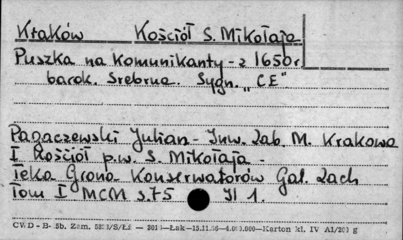 Kraków Kościół S. Mikołaja
Puszka na komunikanty - z 1650 r
barok. srebrna. Sygn. „CE".
Pagaczewski Julian - Inw. Zab. M. Krakowa
I Kościół p.w. S. Mikołaja -
Teka Grona Konserwatorów Gal. Zach
tom I MCM s.75 Il 1.
CWD - B- 5b. Zam. — Łok — 4.000.000—Karton kl. IV A1/200 g